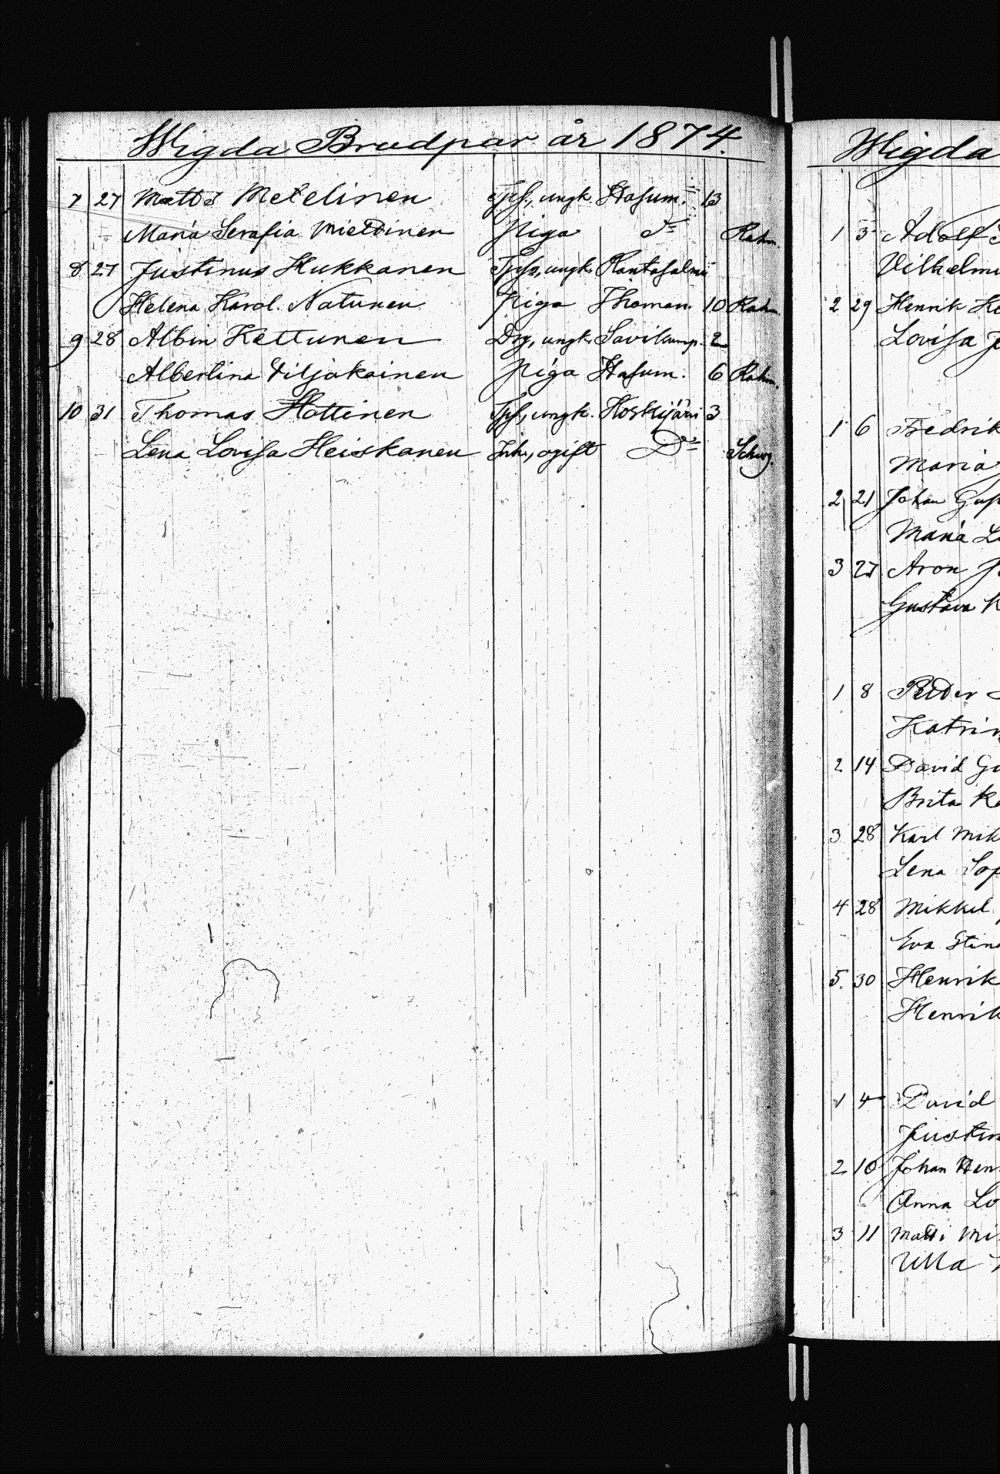 Wigda Brudpar år 1874.
7 27 Matts Metelinen Tpsn, ungk. Hasum. 13
Maria Serafia Miettinen Piga Do Rahm.
8 27 Justinus Hukkanen Tpsn, ungk. Rantasalmi
Helena Karol. Natunen Piga Thoman. 10 Rahm.
9 28 Albin Kettunen Drg, ungk. Savikump. 2
Albertina Viljakainen Piga Hasum. 6 Rahm.
10 31 Thomas Hottinen Tpsn, ungk. Koskijärvi 3
Lena Lovisa Heiskanen Inh., ogift Do Schwg.
Wigda
1 5 Adolf
Vilhelmi
2 29 Henrik
Lovisa
1 6 Fredrik
Maria
2 21 Johan
Maria
3 27 Aron
Gustava
1 8 Petter
Katrin
2 14 David
Brita
3 28 Karl Mik
Lena Sop
4 28 Mikkel
Eva Stina
5. 30 Henrik
Henrik
1 4 David
Justin
2 10 Johan Hen
Anna Lo
3 11 Matti Mi
Ulla